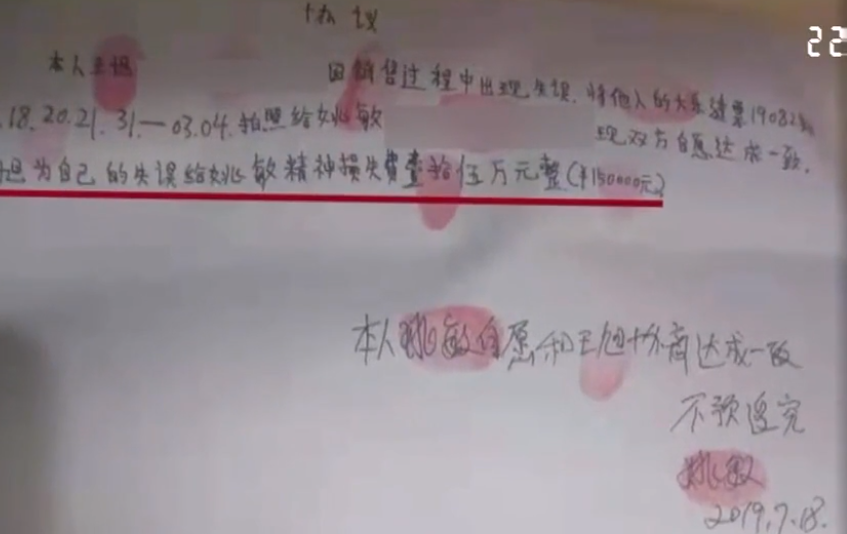 协议
22
本人王旭 因销售过程中出现失误.将他人的大乐透票19082期
.18.20.21.31.一03.04.拍照给姚敏 现双方自愿达成一致.
旭为自己的失误给姚敏精神损失费壹拾伍万元整(¥150000元)
本人姚敏自愿和王旭协商达成一致
不预追究
姚敏
2019.7.18.